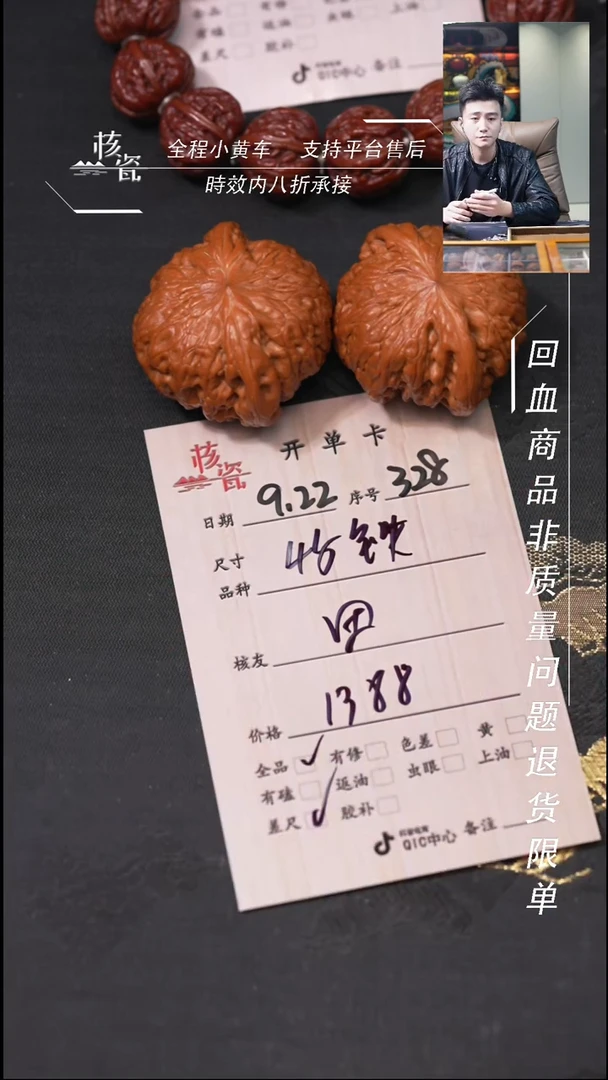 全品 有修 色差 上油
有磕 返油 虫眼
差尺 胶补
QIC中心 备注
核瓷
全程小黄车 支持平台售后
時效内八折承接
回血商品非质量问题退货限单
核瓷
开单卡
日期 9.22 序号 328
尺寸
品种 45
核友
价格 1388
全品 有修 色差 黄
有磕 返油 虫眼 上油
差尺 胶补
抖音电商
QIC中心 备注